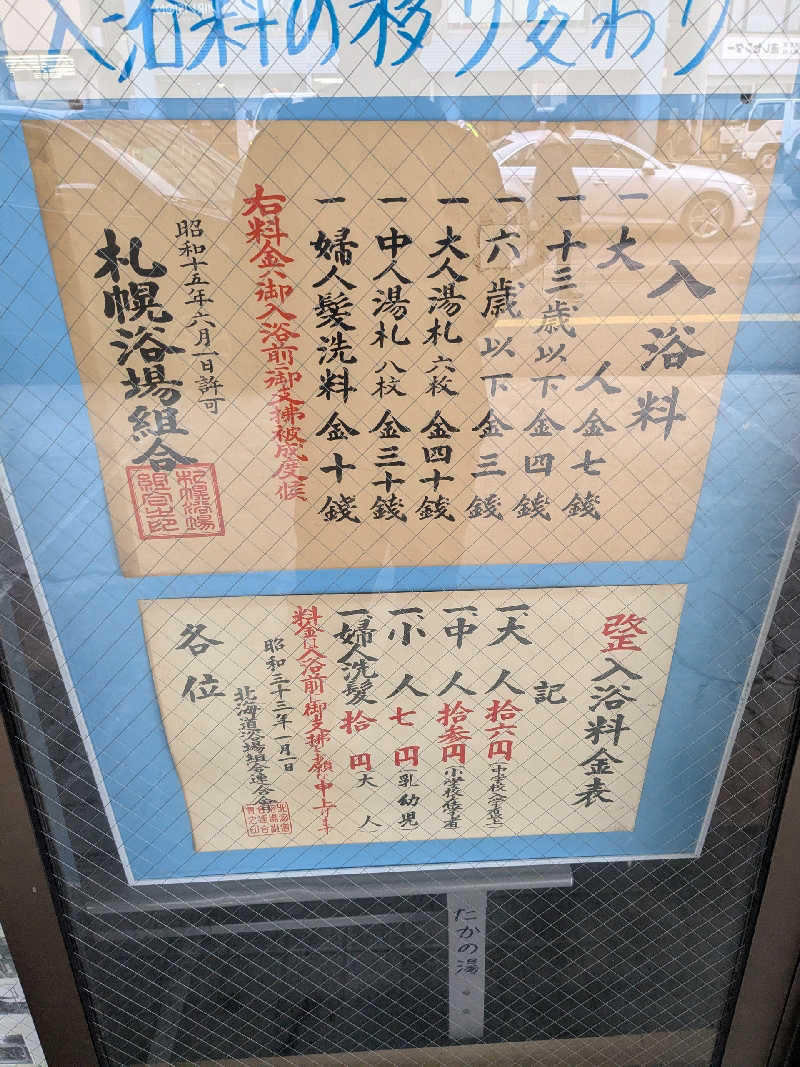 入浴料の移り変わり
入浴料
一大人金七錢
一十三歳以下金四錢
一六歳以下金三錢
一大人湯札六枚金四十錢
一中人湯札八枚金三十錢
一婦人髪洗料金十錢
右料金ハ御入浴前ニ御支拂被成度候
昭和十五年六月一日許可
札幌浴場組合
改正入浴料金表
記
一、大人拾六円
一、中人拾参円
一、小人七円(乳幼児)
一、婦人洗髪拾円(大人)
料金は入浴前に御支拂を願い申上げます
昭和三十三年一月一日
北海道浴場組合連合会
各位
たかの湯